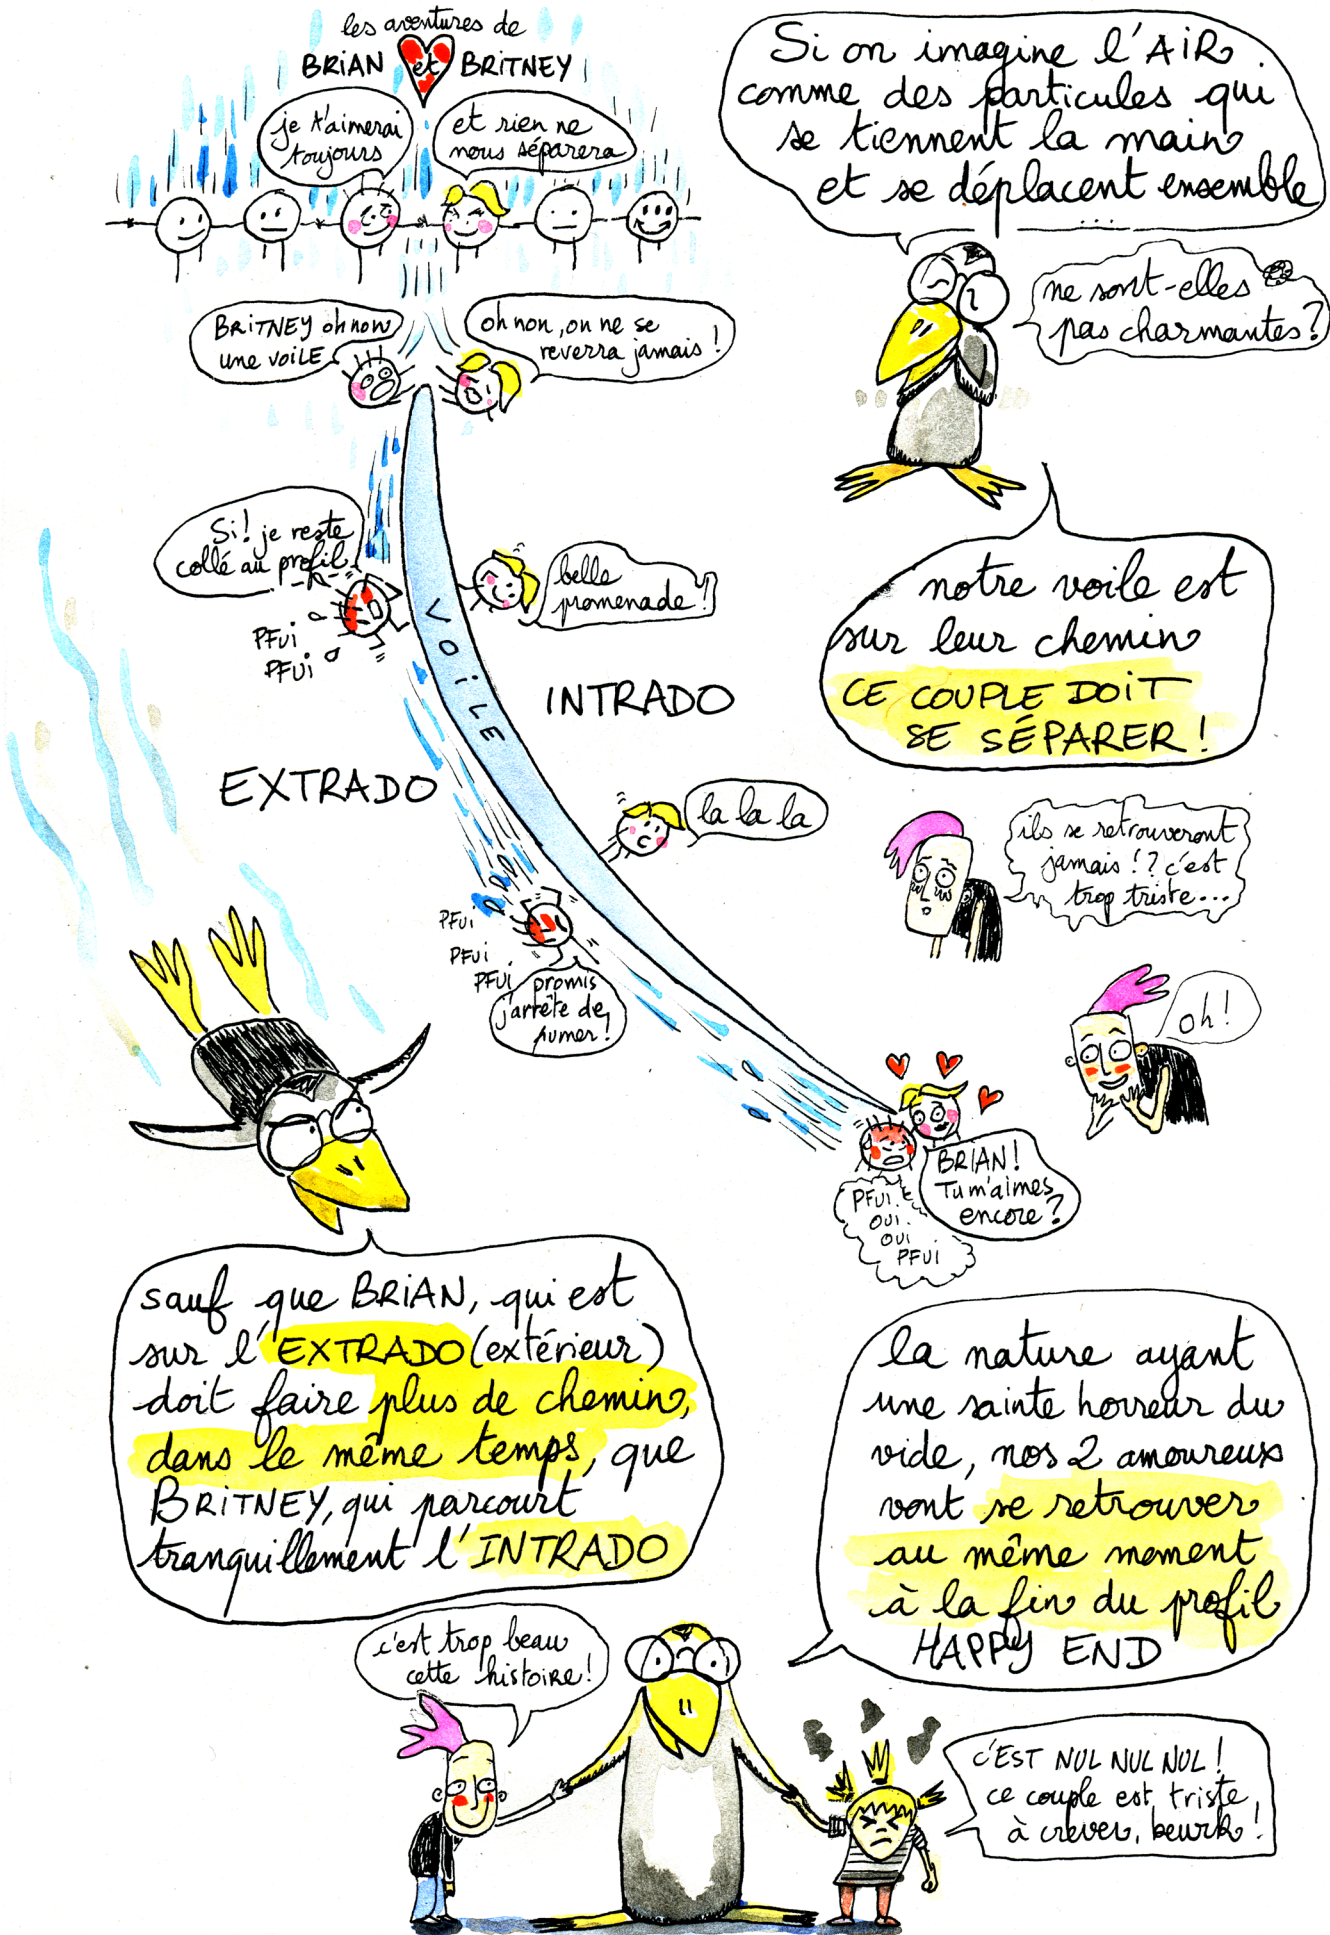 les aventures de
BRiAN et BRiTNEY
je t'aimerai
toujours
et rien ne
nous séparera
Si on imagine l'AiR
comme des particules qui
se tiennent la main
et se déplacent ensemble
...
ne sont-elles
pas charmantes?
BRiTNEY oh non
une voiLE
oh non, on ne se
reverra jamais !
Si! je reste
collé au profil
PFui
PFui
belle
promenade!
VOiLE
INTRADO
EXTRADO
notre voile est
sur leur chemin
CE COUPLE DOiT
SE SÉPARER !
la la la
ils se retrouveront
jamais !? c'est
trop triste...
PFui
PFui
PFui
promis
j'arrête de
fumer!
oh !
BRIAN!
Tu m'aimes
encore?
PFui
OUi.
OUi
PFUi
sauf que BRiAN, qui est
sur l'EXTRADO (extérieur)
doit faire plus de chemin,
dans le même temps, que
BRiTNEY, qui parcourt
tranquillement l'INTRADO
la nature ayant
une sainte horreur du
vide, nos 2 amoureux
vont se retrouver
au même moment
à la fin du profil
HAPPY END
c'est trop beau
cette histoire!
C'EST NUL NUL NUL !
ce couple est triste
à crever, beurk !